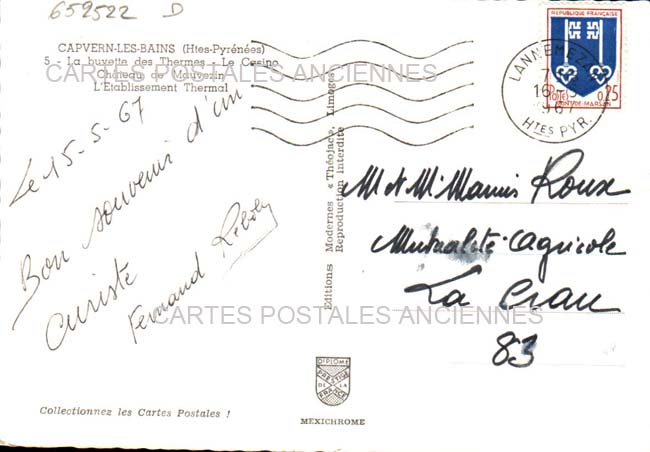 659522 D
CAPVERN-LES-BAINS (Htes-Pyrénées)
5 - La buvette des Thermes - Le Casino
Château de Mauvezin
L'Etablissement Thermal
CARTES POSTALES ANCIENNES
Le 15-5-67
Bon souvenir d'un
curiste
Fernand
CARTES POSTALES ANCIENNES
Collectionnez les Cartes Postales !
Editions Modernes « Théojac », Limoges
Reproduction interdite
DIPLOME
PRESTIGE
DE LA
FRANCE
MEXICHROME
REPUBLIQUE FRANÇAISE
POSTES
0,25
MONT-DE-MARSAN
LANNEMEZAN
16-5
1967
HTES PYR.
M et Mme Roux
Mutualité Agricole
La Crau
83